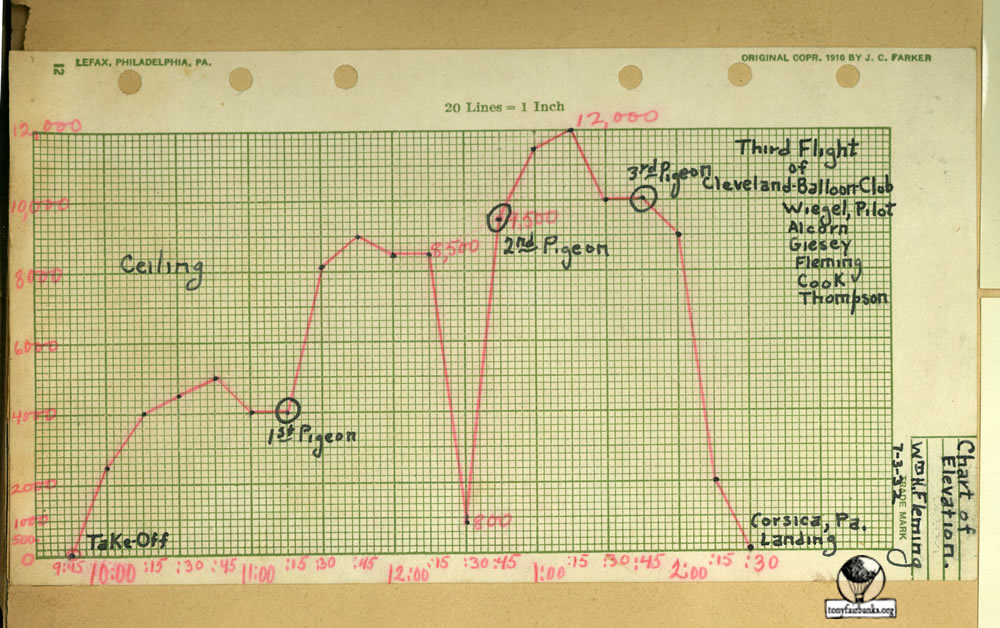 12
LEFAX, PHILADELPHIA, PA.
ORIGINAL COPR. 1910 BY J. C. FARKER
20 Lines = 1 Inch
12,000
12,000
Third Flight
of
Cleveland-Balloon Club
Wiegel, Pilot
Alcorn
Giesey
Fleming
Cook
Thompson
3rd Pigeon
10,000
9,500
2nd Pigeon
8,500
Ceiling
8000
6000
4000
1st Pigeon
2000
1000
500
0
800
Take-Off
Corsica, Pa.
Landing
9:45 10:00 :15 :30 :45 11:00 :15 :30 :45 12:00 :15 :30 :45 1:00 :15 :30 :45 2:00 :15 :30
Chart of
Elevation.
Wm H. Fleming
7-3-32
TRADE MARK
tonyfairbanks.org